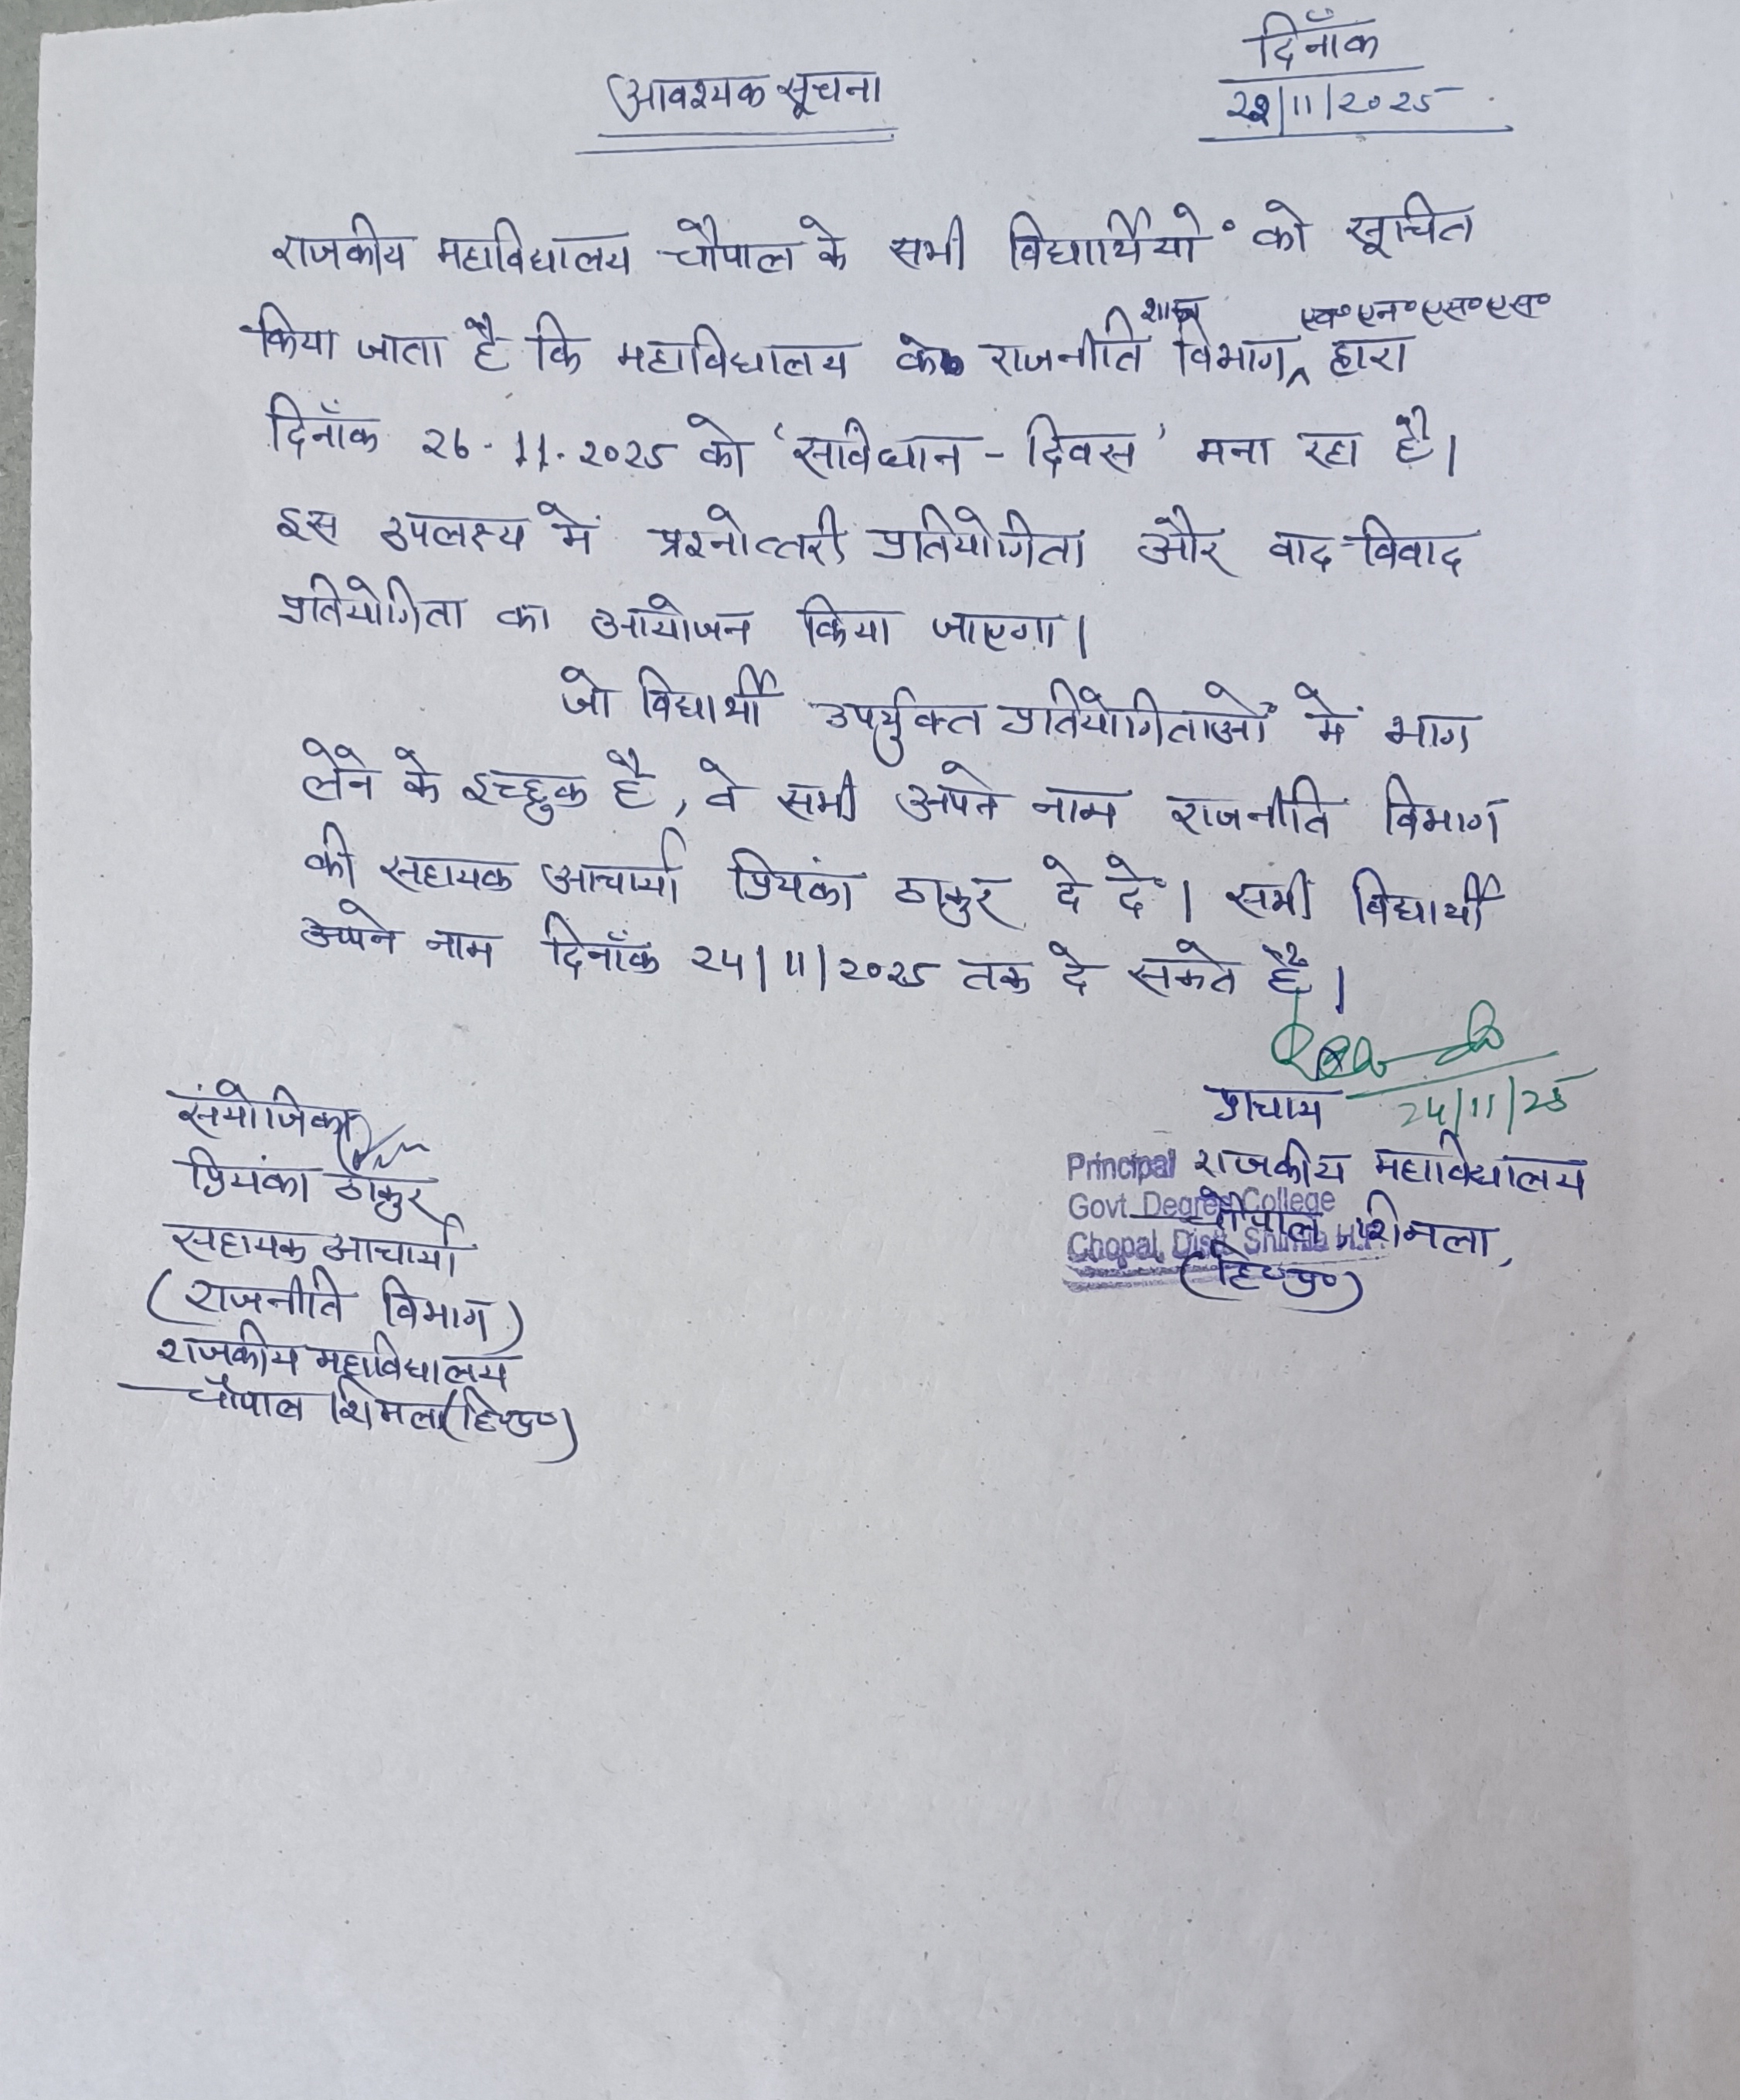 आवश्यक सूचना
दिनाँक
/11/2025
राजकीय महाविद्यालय चौपाल के सभी विद्यार्थियों को सूचित
किया जाता है कि महाविद्यालय के राजनीति शास्त्र विभाग एवं एन॰एस॰एस॰ द्वारा
दिनाँक 26-11-2025 को 'संविधान - दिवस' मना रहा है।
इस उपलक्ष्य में प्रश्नोत्तरी प्रतियोगिता और वाद-विवाद
प्रतियोगिता का आयोजन किया जाएगा।
जो विद्यार्थी उपर्युक्त प्रतियोगिताओं में भाग
लेने के इच्छुक है, वे सभी अपने नाम राजनीति विभाग
की सहायक आचार्या प्रियंका ठाकुर दे दें। सभी विद्यार्थी
अपने नाम दिनाँक 25/11/2025 तक दे सकते हैं।
संयोजिका
प्रियंका ठाकुर
सहायक आचार्या
(राजनीति विभाग)
राजकीय महाविद्यालय
चौपाल शिमला (हि॰प्र॰)
24/11/25
प्राचार्य
राजकीय महाविद्यालय
चौपाल, शिमला,
(हि॰प्र॰)
Principal
Govt. Degree College
Chopal, Distt. Shimla H.P.